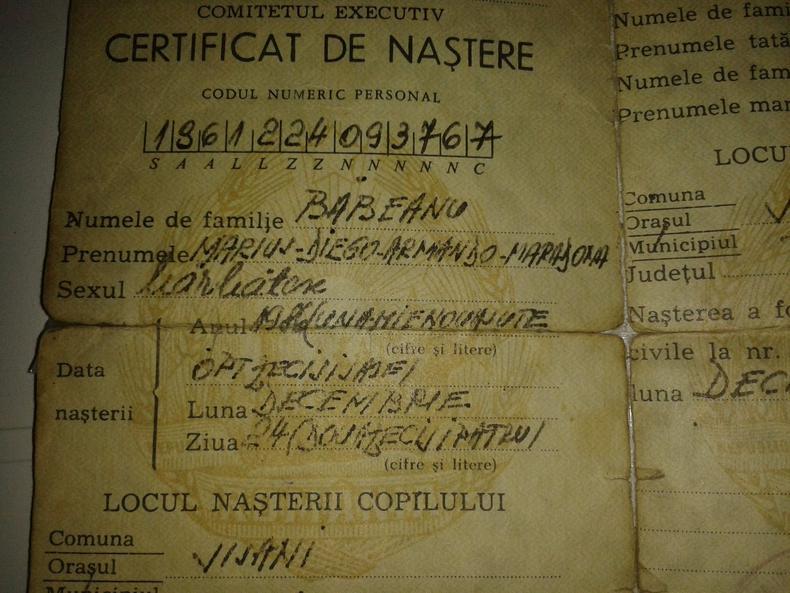 COMITETUL EXECUTIV
CERTIFICAT DE NAȘTERE
CODUL NUMERIC PERSONAL
1861224093767
S A A L L Z Z N N N N N C
Numele de familie BABEANU
Prenumele MARIUS-DIEGO-ARMANDO-MARADONA
Sexul bărbătesc
Anul 1986 (UNA MIE NOUA SUTE
(cifre și litere)
OPTZECISISASE)
Data nașterii
Luna DECEMBRIE
Ziua 24 (DOUAZECISIPATRU)
(cifre și litere)
LOCUL NAȘTERII COPILULUI
Comuna
Orașul
Municipiul
Numele de fami
Prenumele tată
Numele de fam
Prenumele ma
LOCU
Comuna
Orașul
Municipiul
Județul
Nașterea a fo
civile la nr.
luna DEC